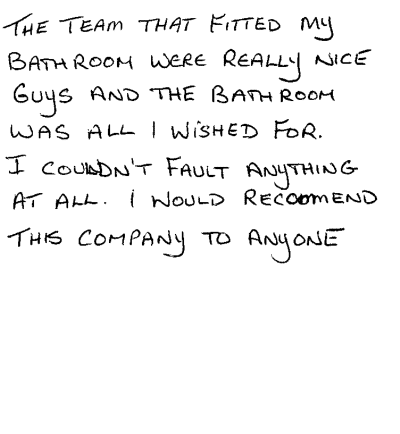 THE TEAM THAT FITTED MY
BATHROOM WERE REALLY NICE
GUYS AND THE BATHROOM
WAS ALL I WISHED FOR.
I COULDN'T FAULT ANYTHING
AT ALL. I WOULD RECOOMEND
THIS COMPANY TO ANYONE